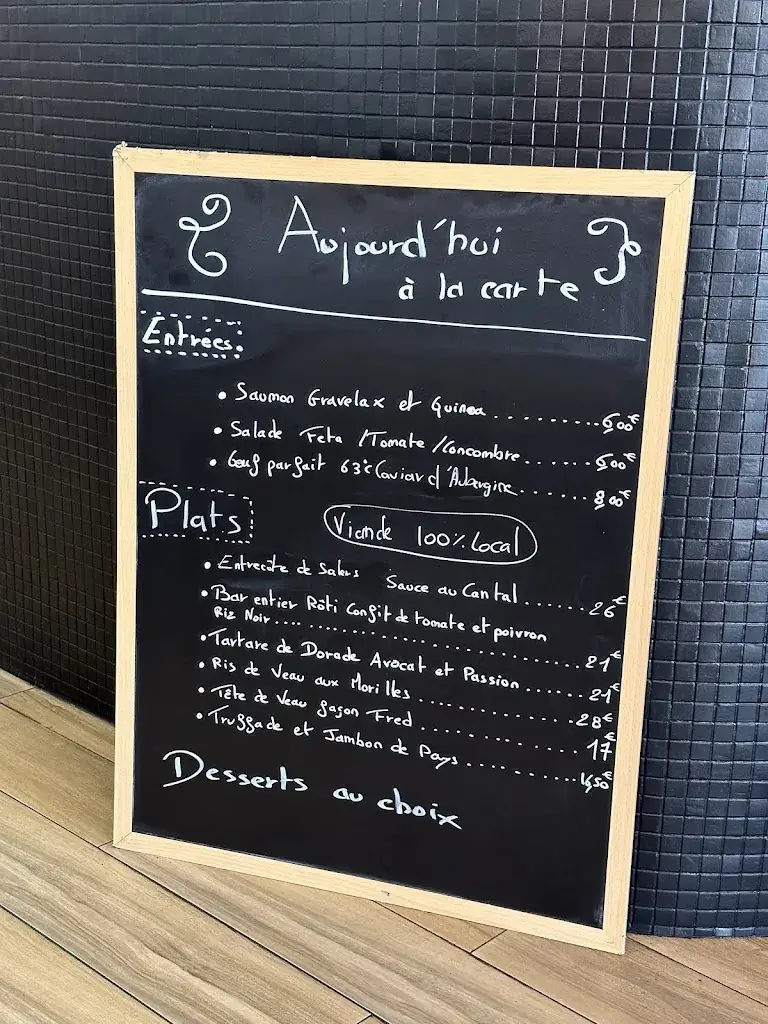 Aujourd'hui
à la carte
Entrées.
• Saumon Gravelax et Quinoa ........ 6,00€
• Salade Feta /Tomate /Concombre ....... 6,00€
• Oeuf parfait 63°c Caviar d'Aubergine ....... 8,00€
Plats
Viande 100% Local
• Entrecôte de Salers Sauce au Cantal ....... 26€
• Bar entier Rôti Confit de tomate et poivron
Riz Noir ........ 21€
• Tartare de Dorade Avocat et Passion ....... 21€
• Ris de Veau aux Morilles ........ 28€
• Tête de Veau façon Fred ........ 17€
• Truffade et Jambon de Pays ........
Desserts au choix